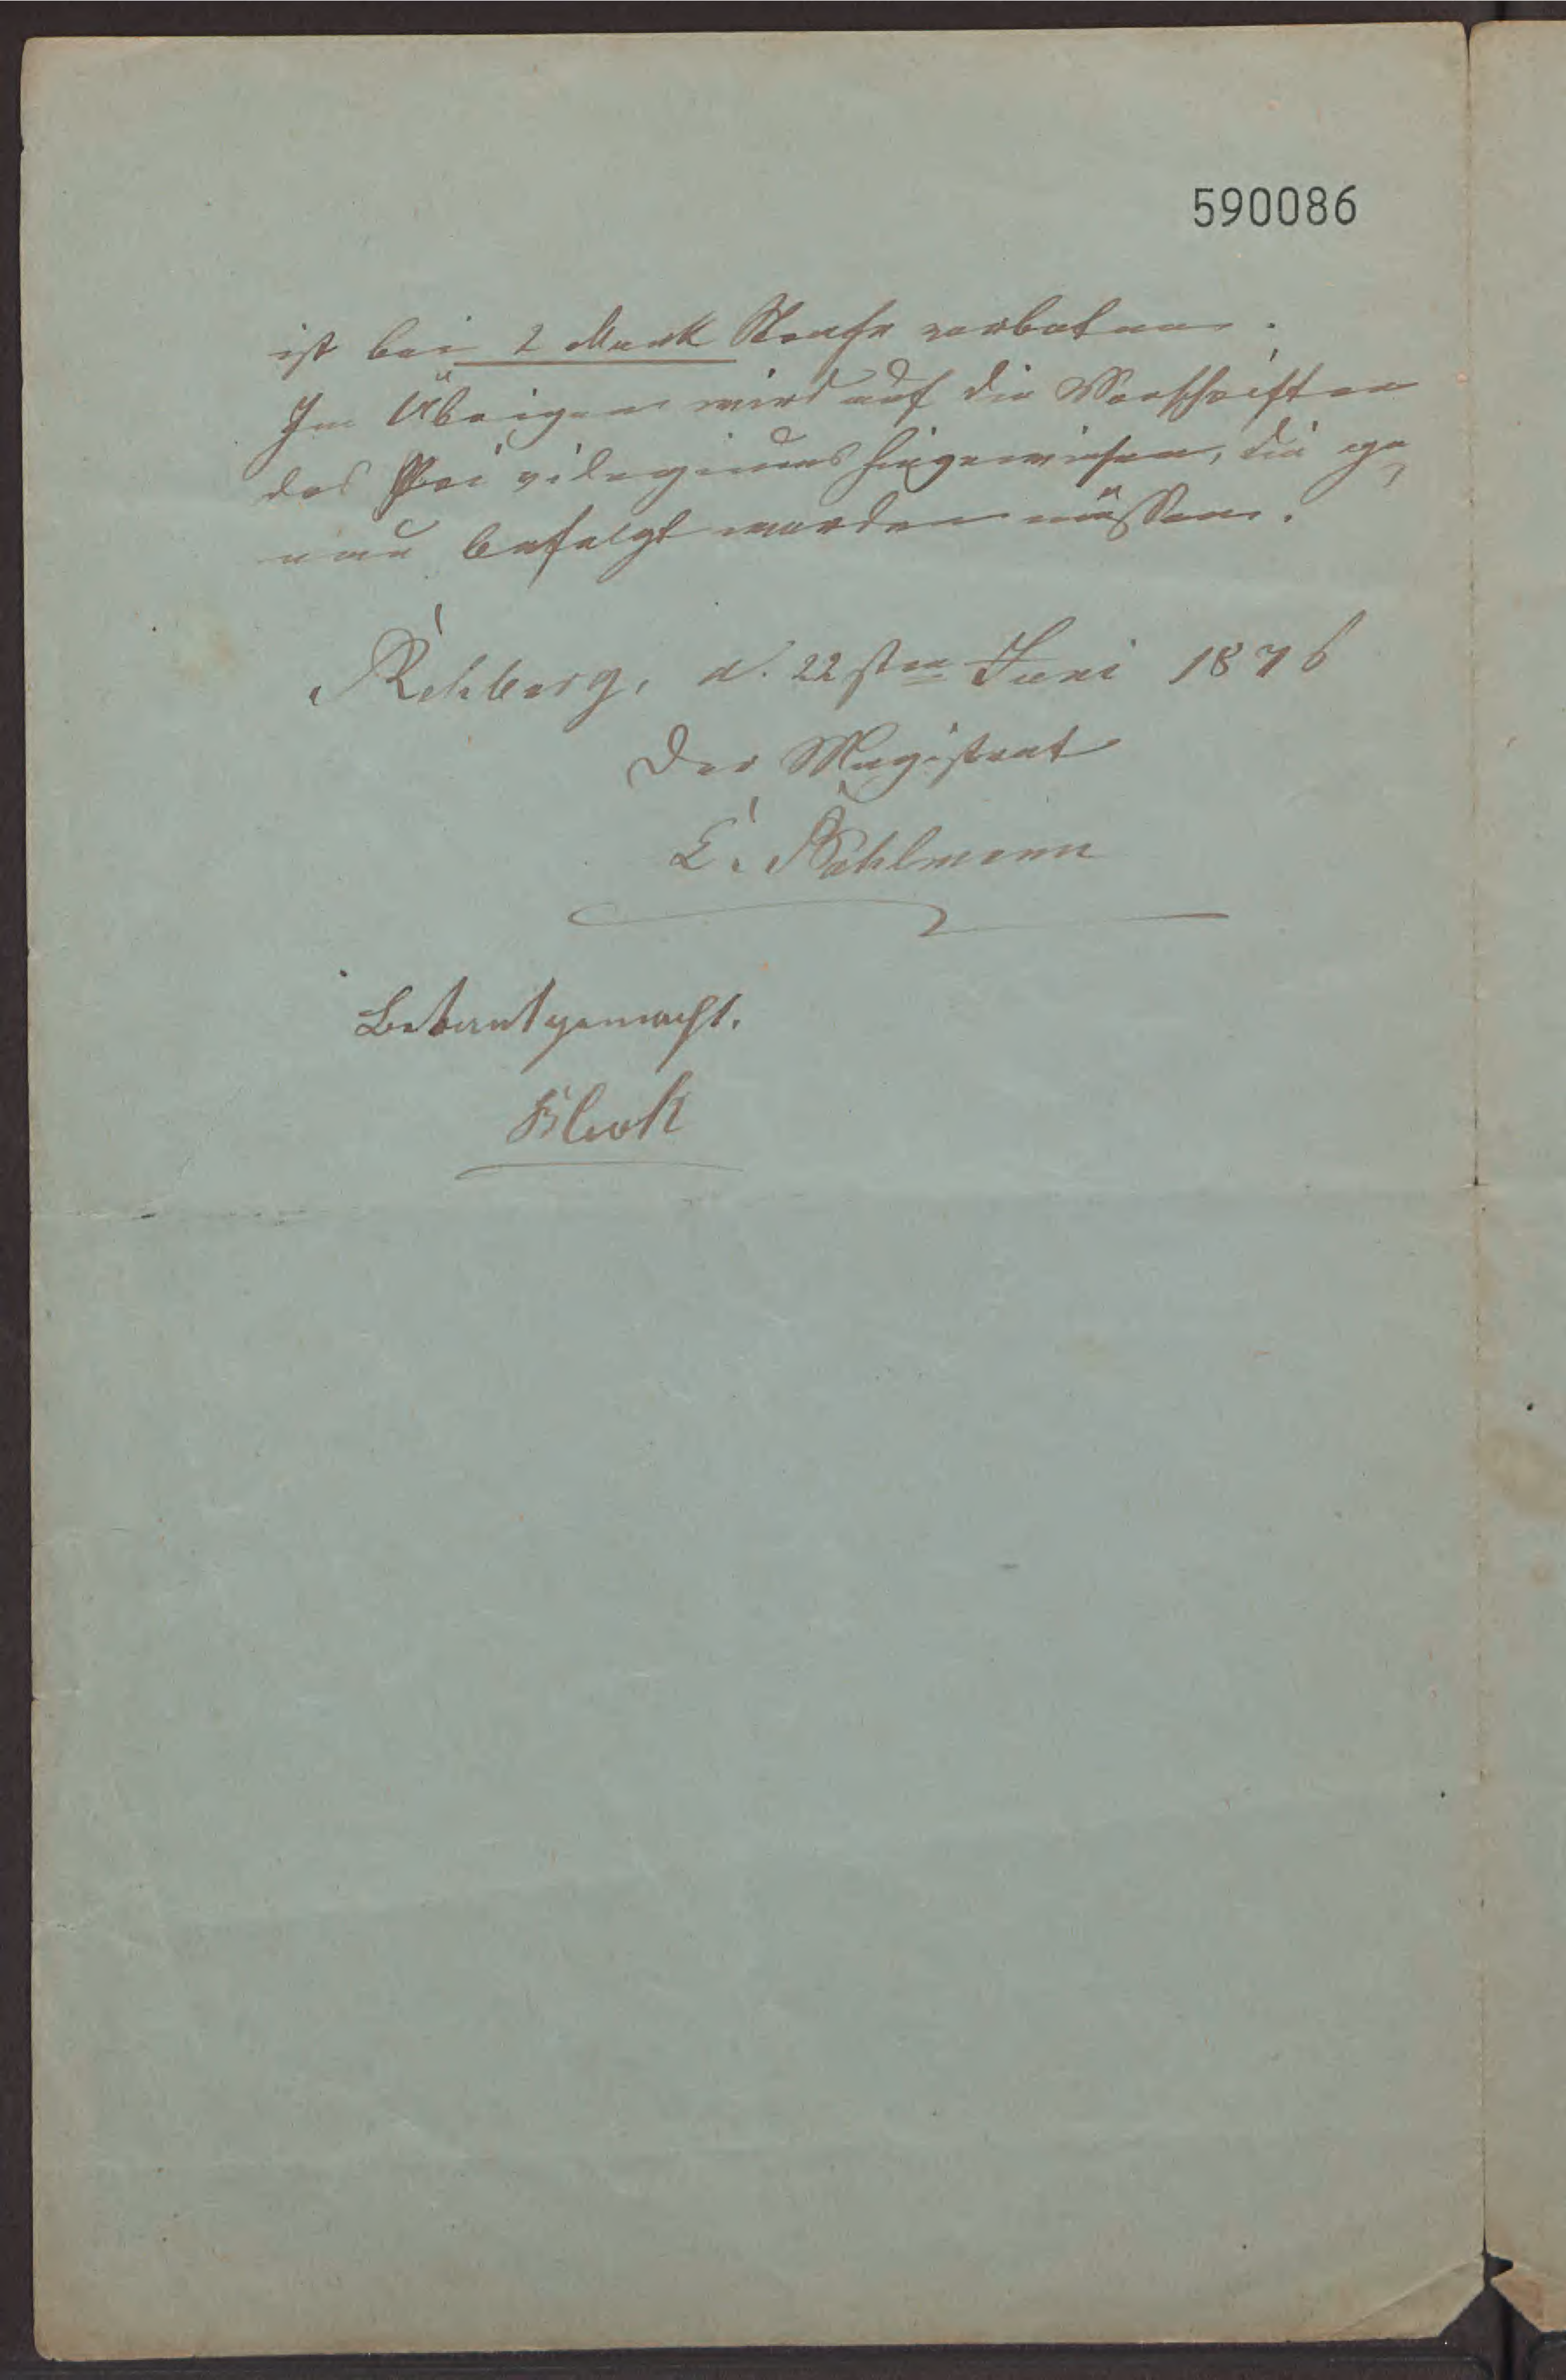 590086
ist bei 2 Mark Strafe verboten.
Im Übrigen wird auf die Vorschriften
des Privilegiums hingewiesen, die ge-
nau befolgt werden müssen.
Rehburg, d. 22sten Juni 1876
Der Magistrat
E. Bahlmann
Bekantgemacht.
Block